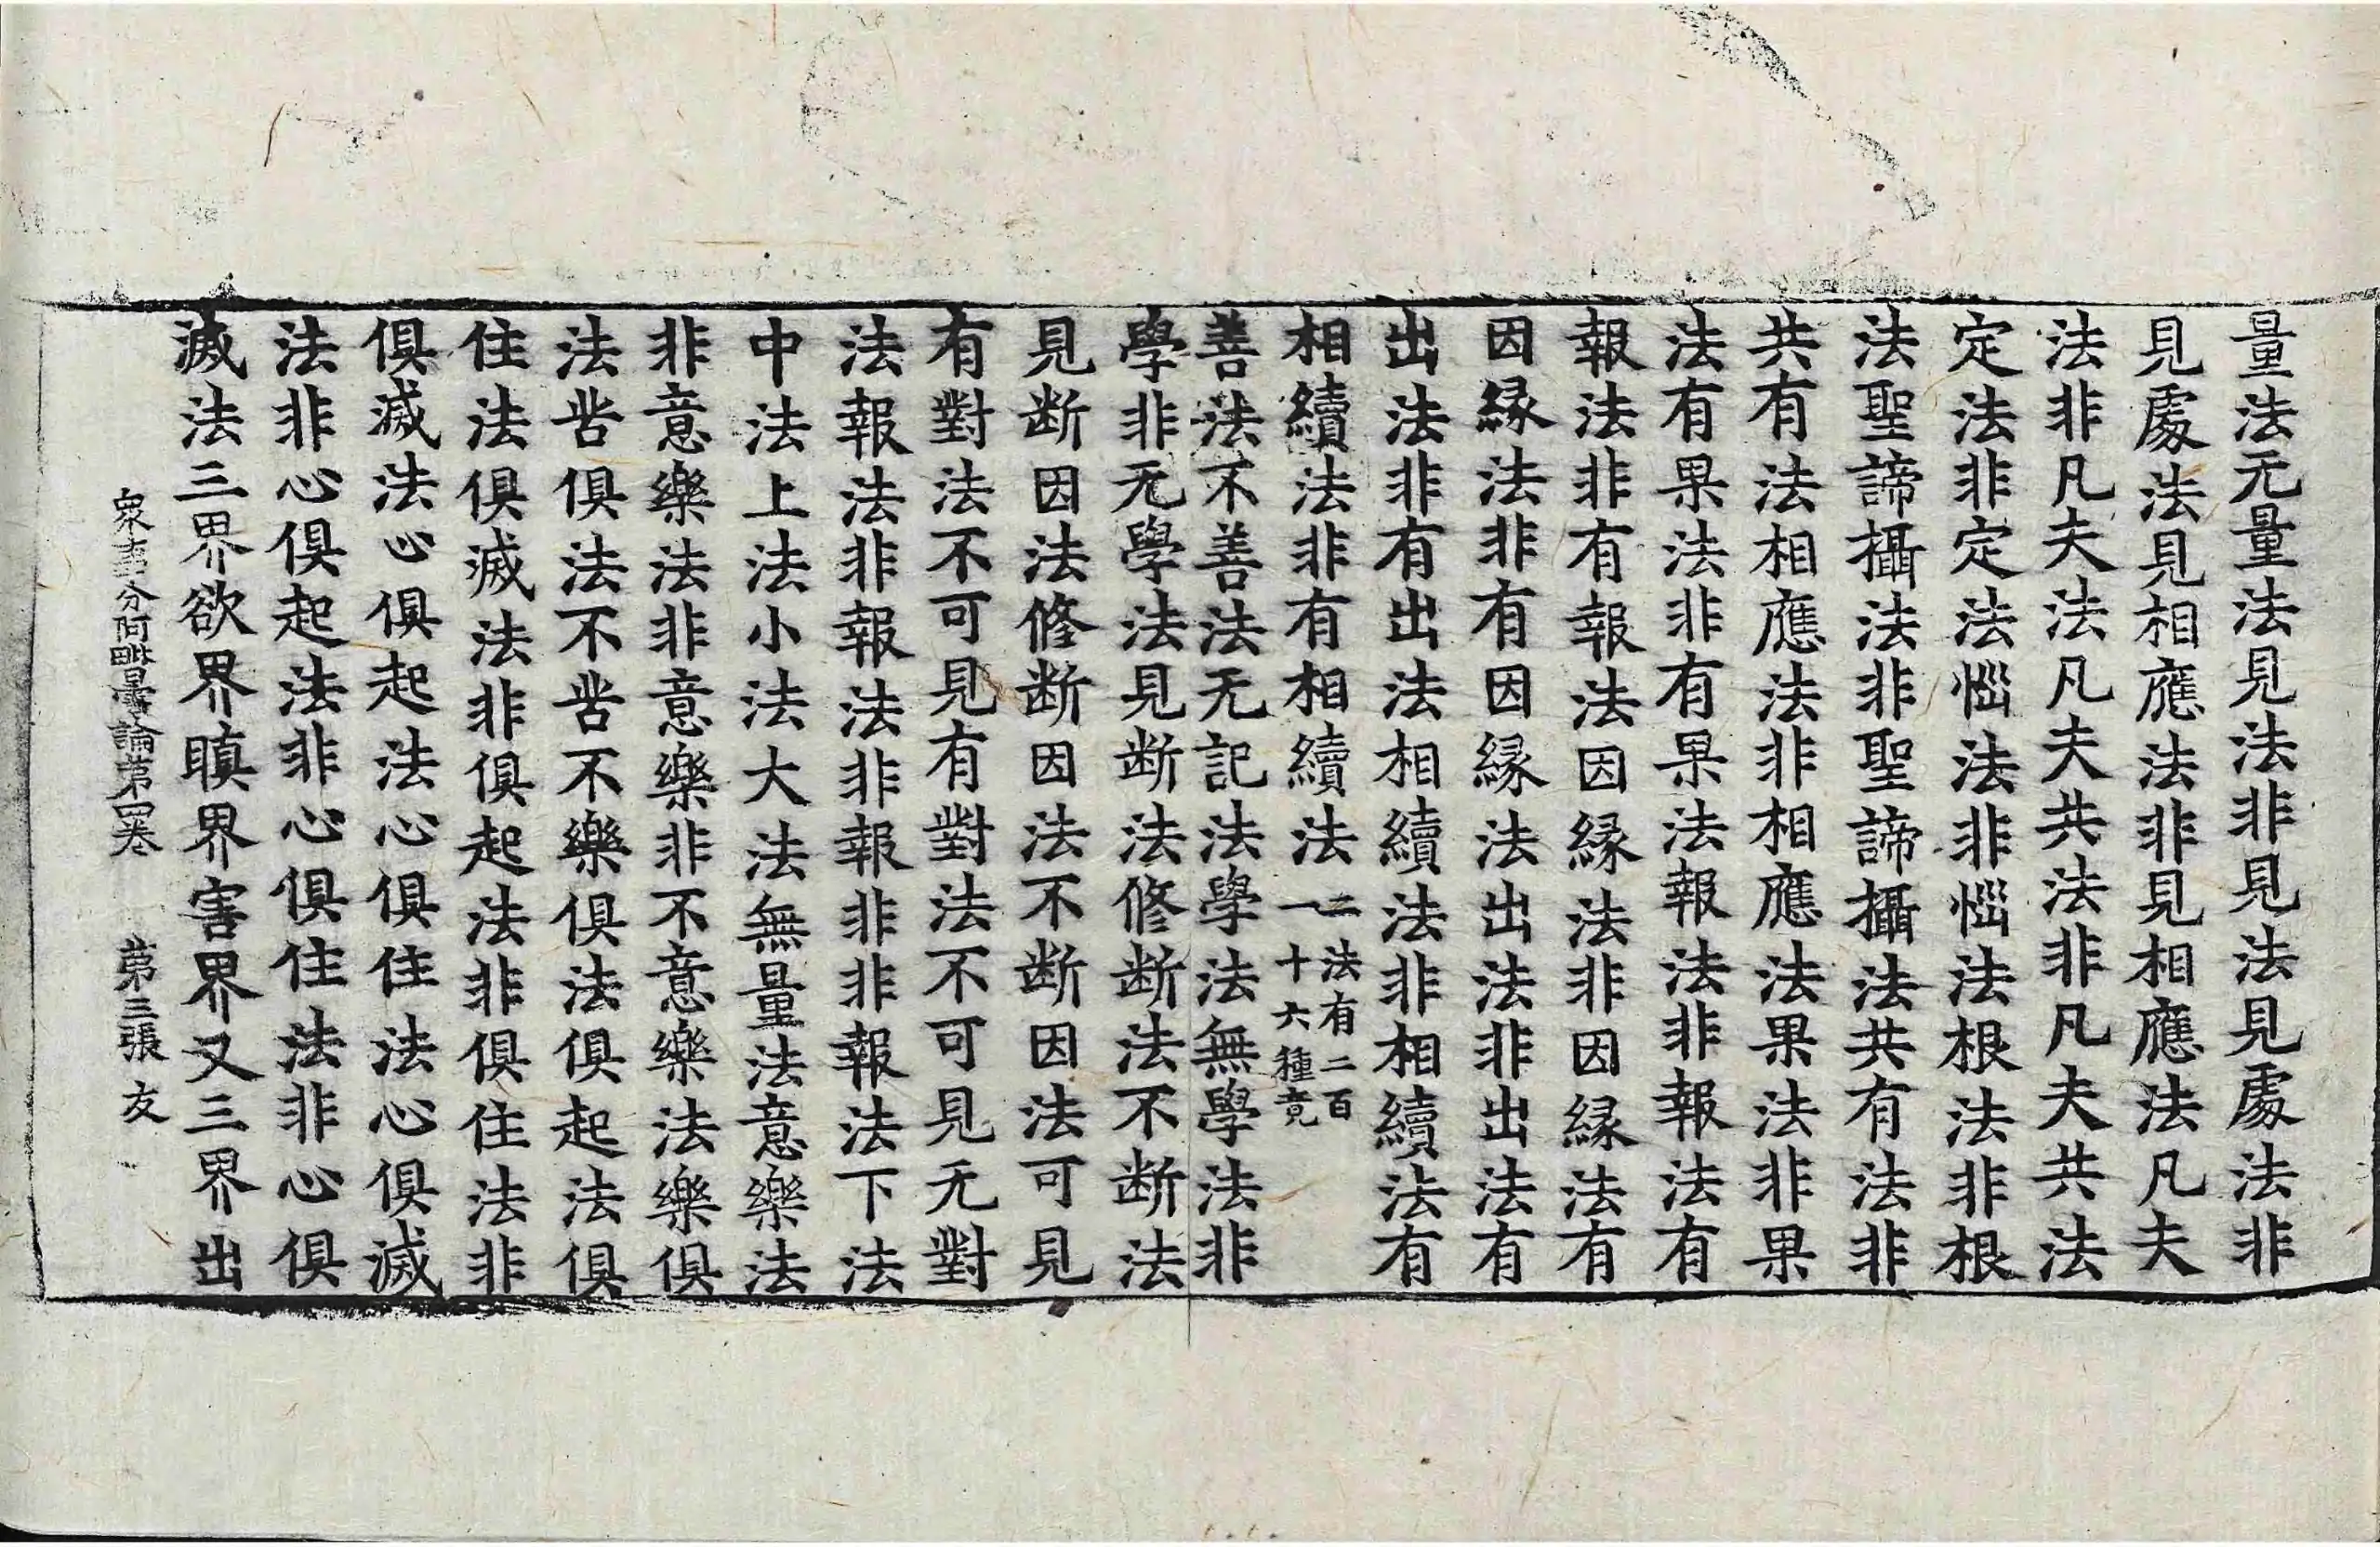 量法无量法見法非見法見處法非
見處法見相應法非見相應法凡夫
法非凡夫法凡夫共法非凡夫共法
定法非定法惱法非惱法根法非根
法聖諦攝法非聖諦攝法共有法非
共有法相應法非相應法果法非果
法有果法非有果法報法非報法有
報法非有報法因緣法非因緣法有
因緣法非有因緣法出法非出法有
出法非有出法相續法非相續法有
相續法非有相續法二法有二百
一十六種竟
善法不善法无記法學法無學法非
學非无學法見断法修断法不断法
見断因法修断因法不断因法可見
有對法不可見有對法不可見无對
法報法非報法非報非非報法下法
中法上法小法大法無量法意樂法
非意樂法非意樂非不意樂法樂俱
法苦俱法不苦不樂俱法俱起法俱
住法俱滅法非俱起法非俱住法非
俱滅法心俱起法心俱住法心俱滅
法非心俱起法非心俱住法非心俱
滅法三界欲界瞋界害界又三界出
衆事分阿毗曇論第四卷 第三張 友